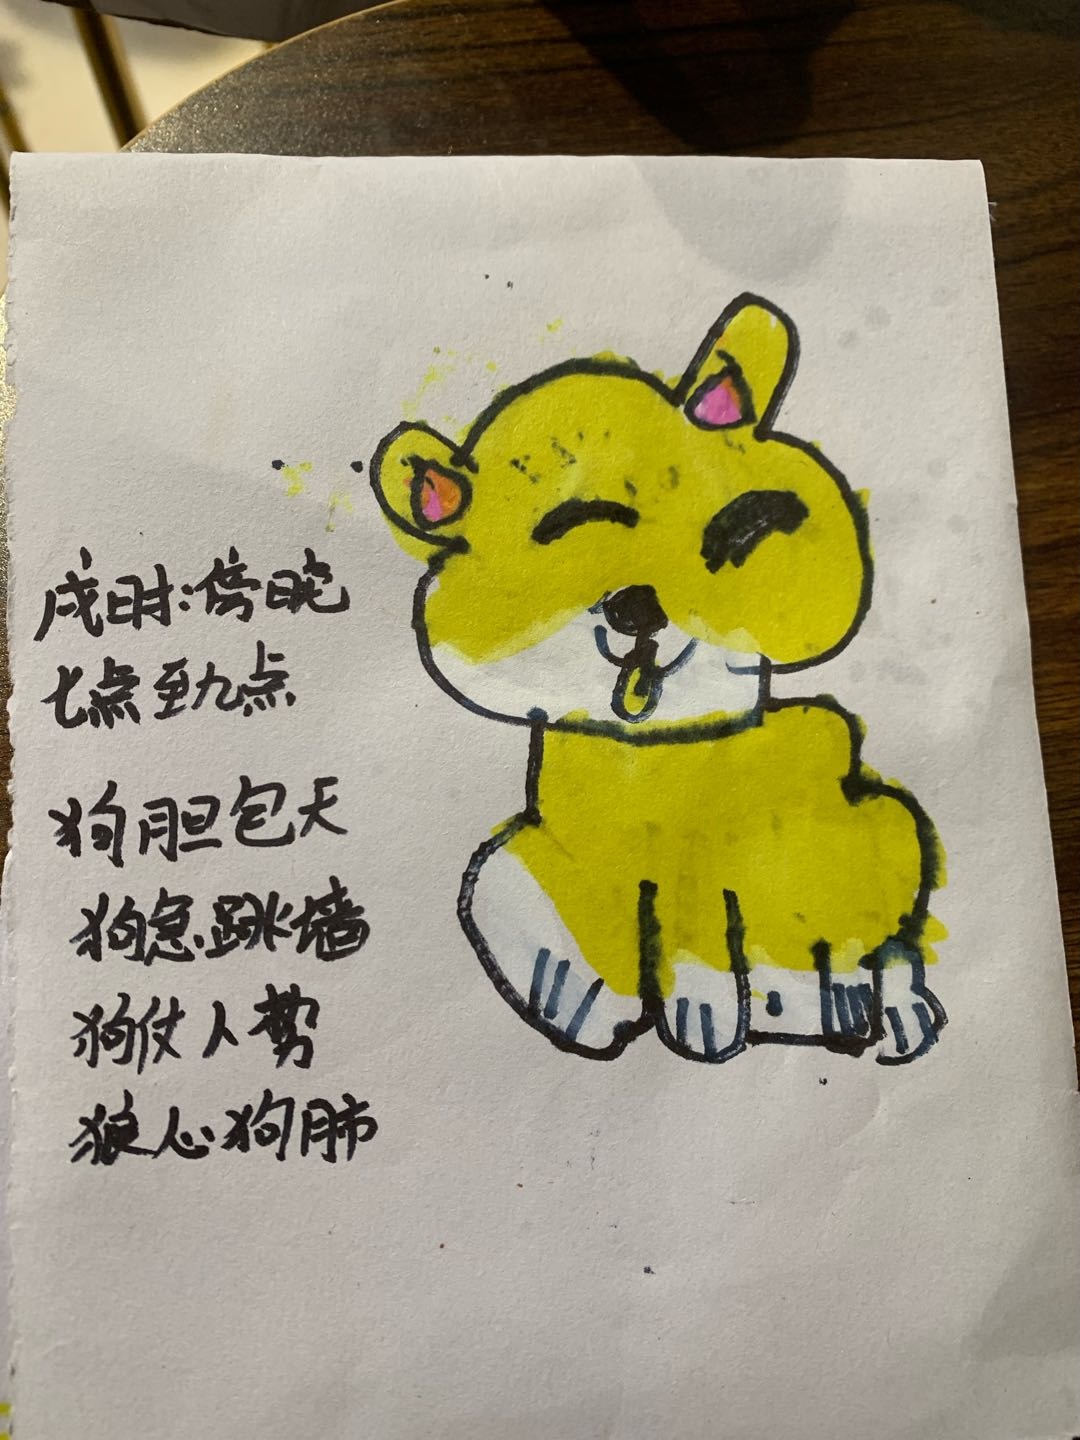 戌时:傍晚
七点至九点
狗胆包天
狗急跳墙
狗仗人势
狼心狗肺